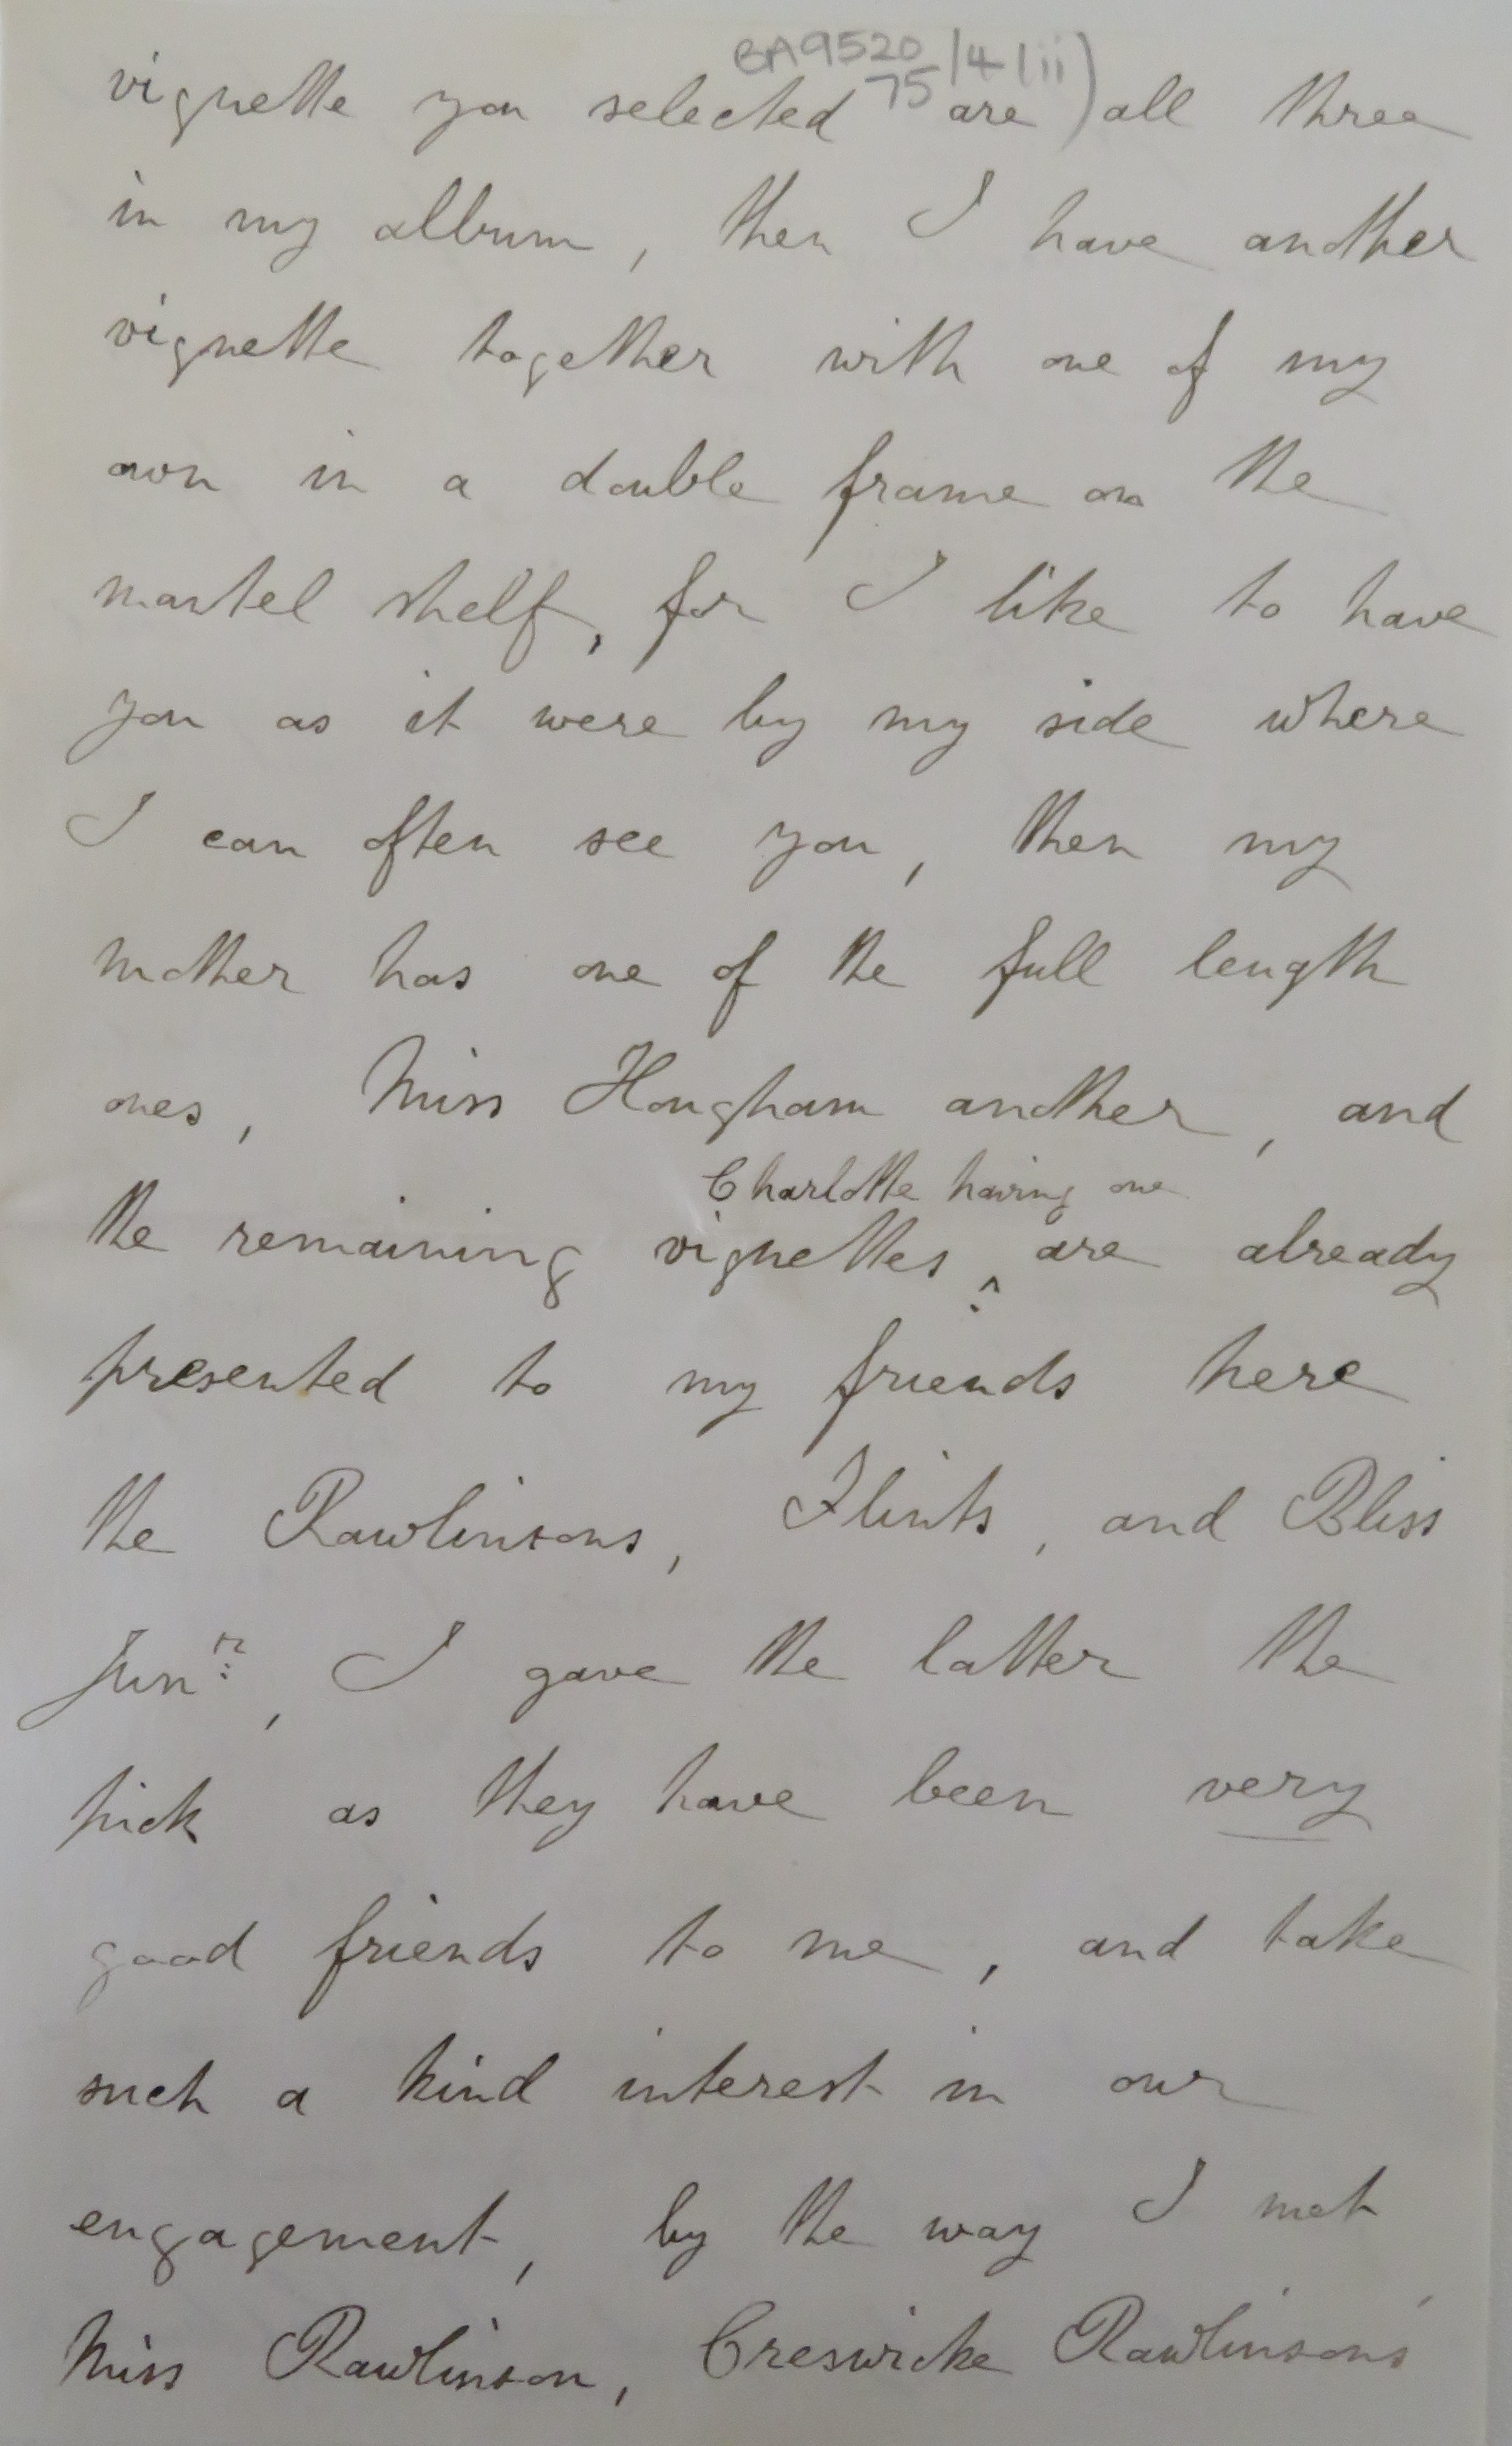 BA9520/4(ii)
75
vignette you selected are all three
in my album, then I have another
vignette together with one of my
own in a double frame on the
mantel shelf, for I like to have
you as it were by my side where
I can often see you, then my
mother has one of the full length
ones, Miss Hougham another, and
Charlotte having one
the remaining vignettes ^ are already
presented to my friends here
the Rawlinsons, Flints, and Bliss
Junr, I gave the latter the
pick as they have been very
good friends to me, and take
such a kind interest in our
engagement, by the way I met
Miss Rawlinson, Creswicke Rawlinsons'